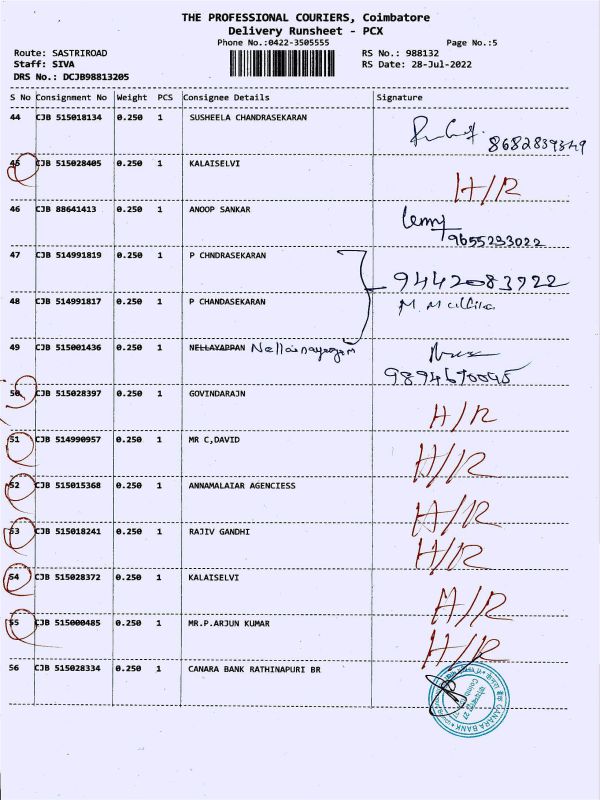 THE PROFESSIONAL COURIERS, Coimbatore
Delivery Runsheet - PCX
Phone No.:0422-3505555 Page No.:5
Route: SASTRIROAD RS No.: 988132
Staff: SIVA RS Date: 28-Jul-2022
DRS No.: DCJB98813205
S No Consignment No Weight PCS Consignee Details Signature
44 CJB 515018134 0.250 1 SUSHEELA CHANDRASEKARAN
8682839349
45 CJB 515028405 0.250 1 KALAISELVI H/R
46 CJB 88641413 0.250 1 ANOOP SANKAR
9655233022
47 CJB 514991819 0.250 1 P CHNDRASEKARAN 9442083922
48 CJB 514991817 0.250 1 P CHANDASEKARAN M. Mallika
49 CJB 515001436 0.250 1 NELLAYAPPAN
9894670095
50 CJB 515028397 0.250 1 GOVINDARAJN H/R
51 CJB 514990957 0.250 1 MR C,DAVID H/R
52 CJB 515015368 0.250 1 ANNAMALAIAR AGENCIESS H/R
53 CJB 515018241 0.250 1 RAJIV GANDHI H/R
54 CJB 515028372 0.250 1 KALAISELVI H/R
55 CJB 515000485 0.250 1 MR.P.ARJUN KUMAR H/R
56 CJB 515028334 0.250 1 CANARA BANK RATHINAPURI BR
CANARA BANK